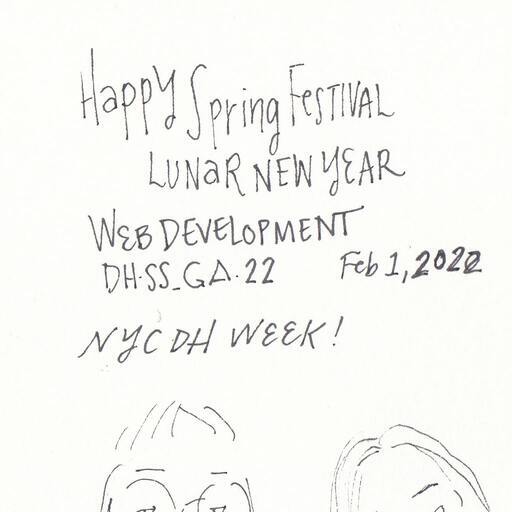 Happy Spring Festival
Lunar New Year
Web Development
DH-SS_GA.22 Feb 1, 2022
NYC DH WEEK!